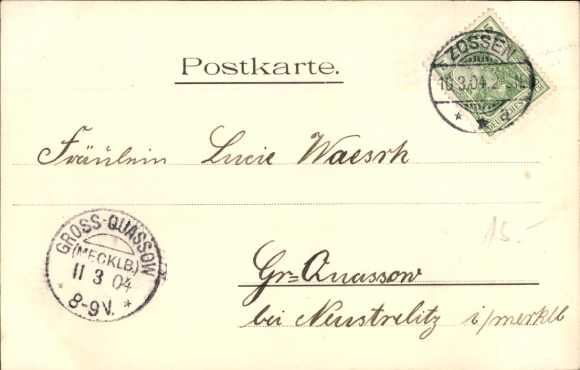 Postkarte.
ZOSSEN
10.3.04.
DEUTSCHES REICH
Fräulein Lucie
15.-
GROSS-QUASSOW
(MECKLB.)
11 3 04
8-9V.
Gr=Quassow
bei Neustrelitz i/merklb